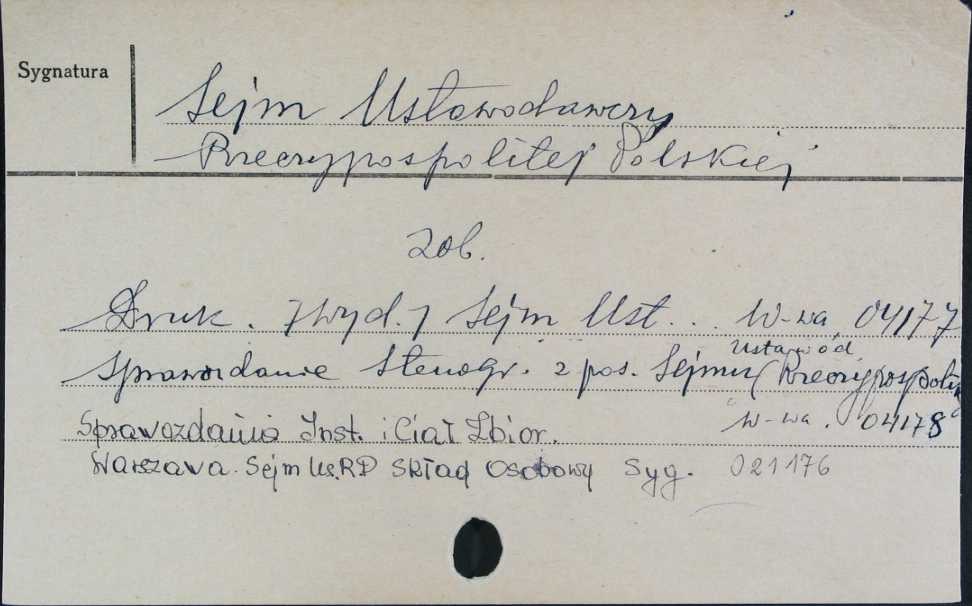 Sygnatura
Sejm Ustawodawczy
Rzeczypospolitej Polskiej
Zob.
Druk. [wyd.] Sejm Ust. .. W-wa 04177
Ustawod.
Sprawozdanie Stenogr. z pos. Sejmu (Rzeczypospolit
W-wa. 04178
Sprawozdania Inst. i Ciał Zbior.
Warszawa. Sejm Us.RP Skład Osobowy Syg. 021176